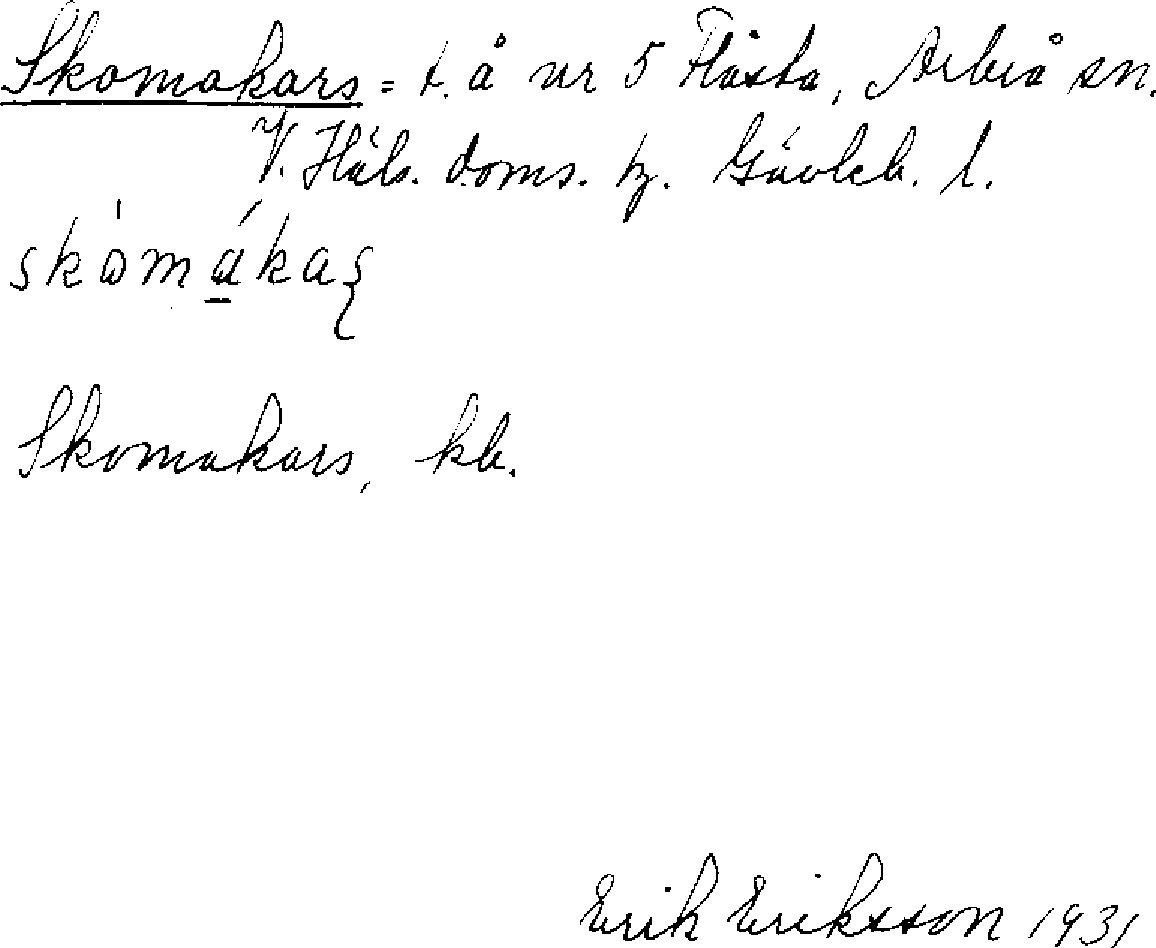 Skomakars = t. å nr 5 Flästa, Arbrå sn.
V. Häls. doms. tg. Gävleb. l.
skòmákaʂ
Skomakars, kb.
Erik Eriksson 1931